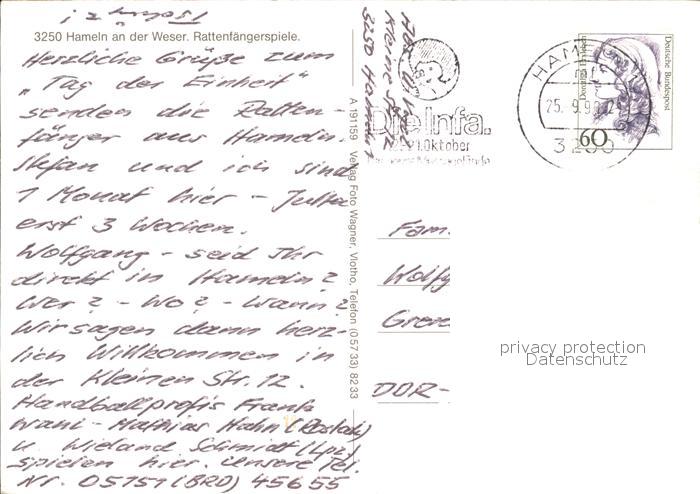 3250 Hameln an der Weser. Rattenfängerspiele.
Herzliche Grüße zum
„Tag der Einheit"
senden die Ratten-
fänger aus Hameln.
Stefan und ich sind
1 Monat hier - Jutta
erst 3 Wochen.
Wolfgang - seid Ihr
direkt in Hameln?
Wer? - Wo? - Wann?
Wir sagen dann herz-
lich Willkommen in
der Kleinen Str. 12.
Handballprofis Frank
Wahl - Mathias Hahn (Rostock)
u. Wieland Schmidt (Lpz)
spielen hier. Unsere Tel.
Nr. 05151 (BRD) 45655
A 191159 Verlag Foto Wagner, Vlotho, Telefon (05733) 8233
Kleine Str. 12
3250 Hameln 1
Die Infa.
Oktober
HAMELN
25. 9.90
3250
Deutsche Bundespost
60
Fam.
Wolfg
DDR-
privacy protection
Datenschutz